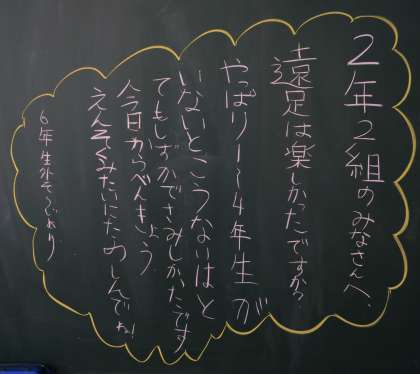 2年2組のみなさんへ.
遠足は楽しかったですか?
やっぱり1〜4年生が
いないとこうないはと
てもしずかでさみしかたです
今日からべんきょう
えんそくみたいにたのしんでね!
6年生外そうじより